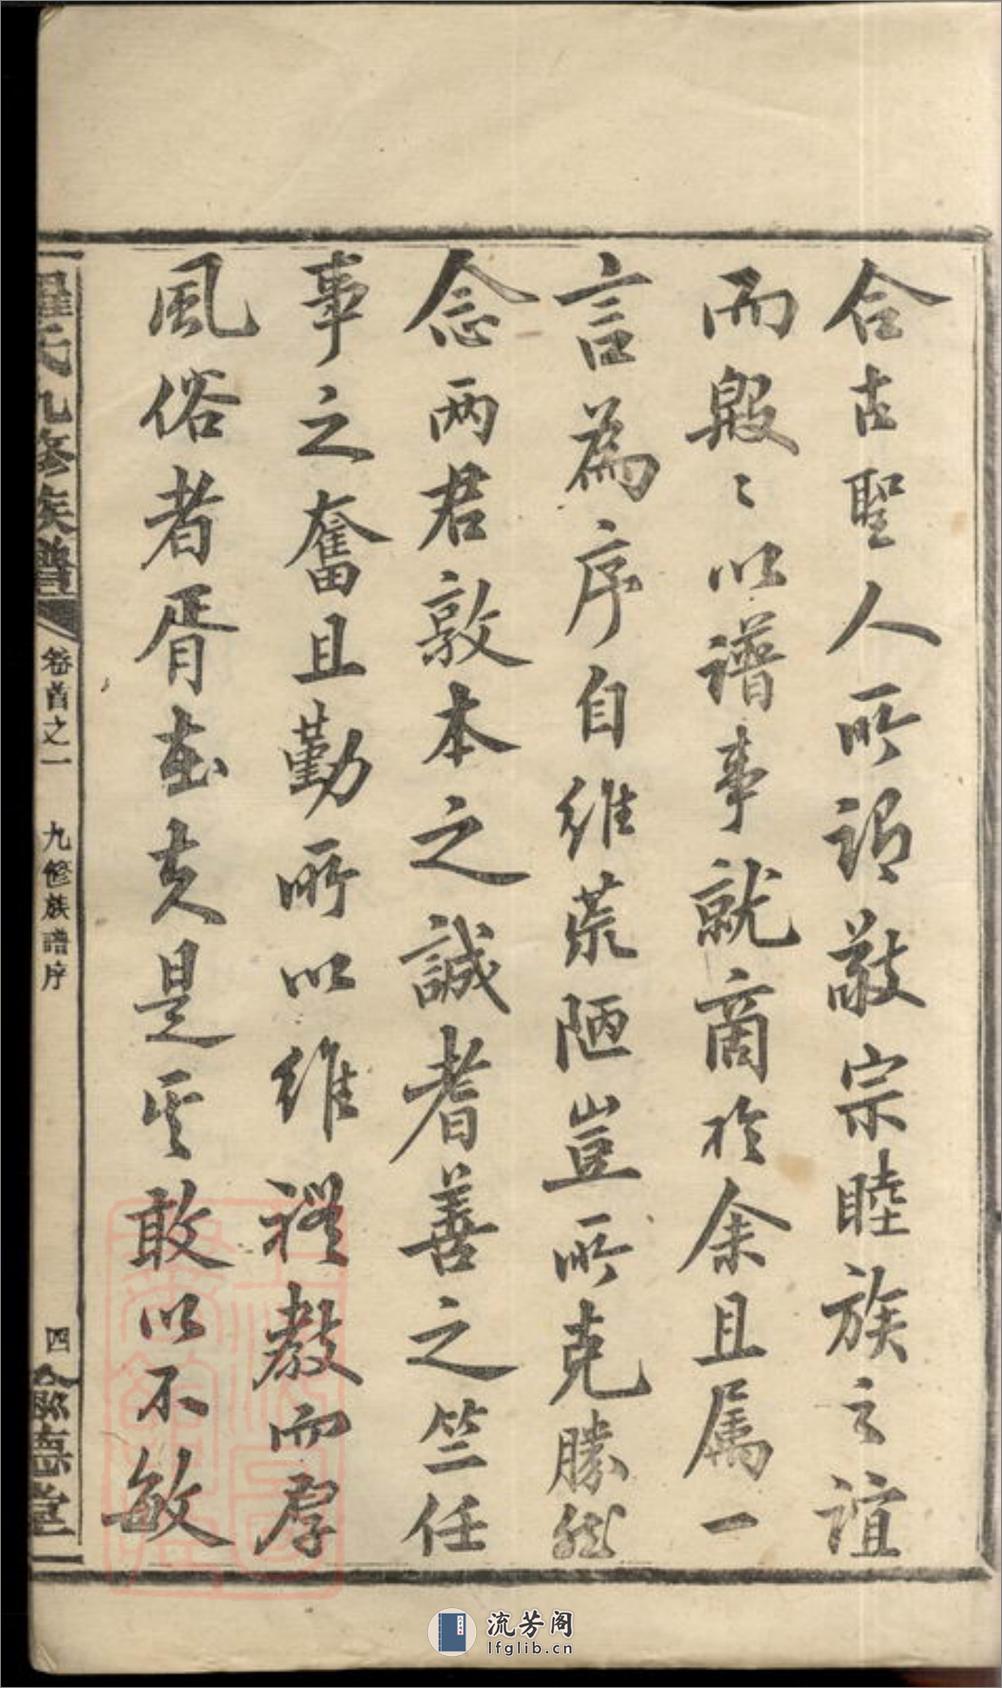 合古聖人所謂敬宗睦族之誼
而殷〻以譜事就商於余且属一
言為序自維荒陋豈所克勝然
念兩君敦本之誠耆善之竺任
事之奮且勤所以維禮教而厚
風俗者胥在夫是其敢以不敏
羅氏九修族譜
卷首之一
九修族譜序
四
德堂
流芳阁
lfglib.cn